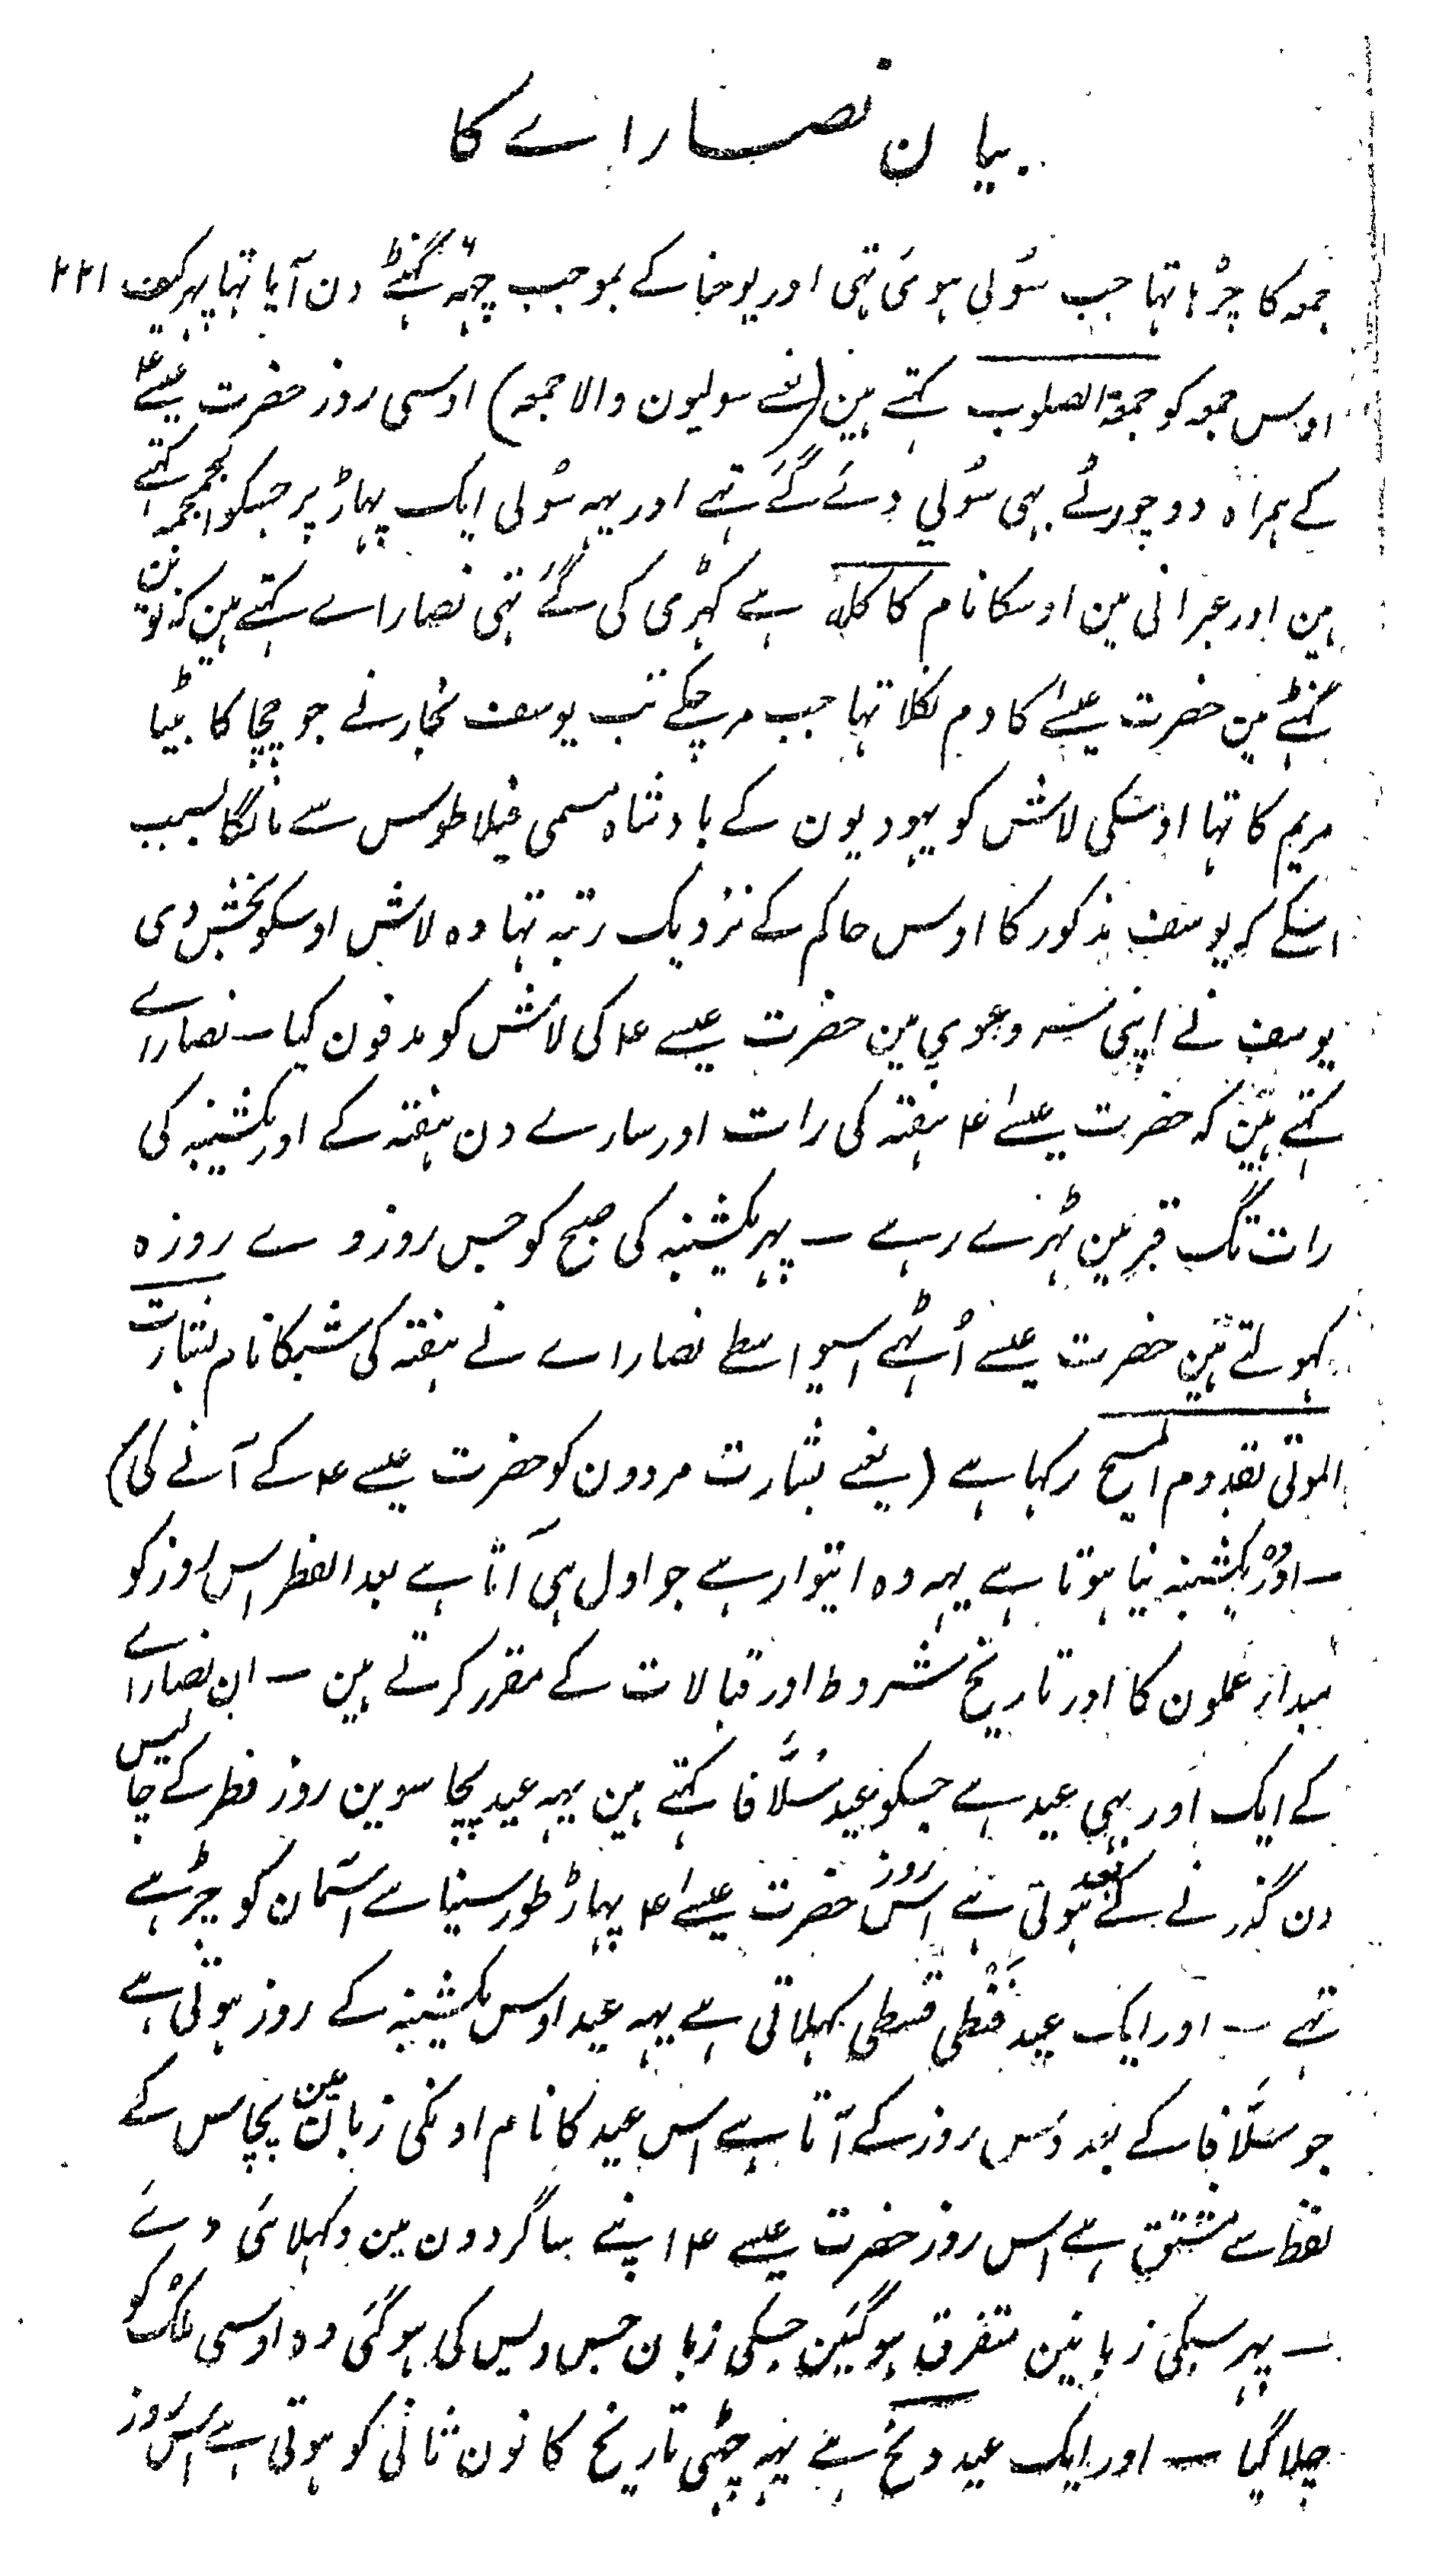 بیان نصاراے کا
جمعہ کا چڑہا تہا جب سُولی ہوئی تہی اور یوحنا کے بموجب چہہ ۶ گہنٹے دن آیا تہا پہر کیف ۲۲۱
اوس جمعہ کو جمعۃ الصلوب کہتے ہین (یعنے سولیون والا جمعہ) اوسی روز حضرت عیسےٰ ؑ
کے ہمراہ دو چور بہی سُولی دئے گئے تہے اور یہہ سُولی ایک پہاڑ پر جسکو الجمجمہ کہتے
ہین اور عبرانی مین اوسکا نام کاکلہ ہے کہڑی کی گئے تہی نصاراے کہتے ہین کہ نوین
گہنٹے مین حضرت عیسےٰ کا دم نکلا تہا جب مر چکے تب یوسف نجار نے جو چچا کا بیٹا
مریم کا تہا اوسکی لاش کو یہودیون کے بادشاہ مسمی فیلاطوس سے مانگا بسبب
اسکے کہ یوسف مذکور کا اوس حاکم کے نزدیک رتبہ تہا وہ لاش اوسکو بخش دی
یوسف نے اپنی مین حضرت عیسے ؑ کی لاش کو مدفون کیا ۔ نصاراے
کہتے ہین کہ حضرت عیسےٰ ؑ ہفتہ کی رات اور سارے دن ہفتہ کے اور یکشنبہ کی
رات تک قبر مین ٹہرے رہے ۔ پہر یکشنبہ کی صبح کو جس روز وے روزہ
کہولتے ہین حضرت عیسے اُٹہے اسیواسطے نصاراے نے ہفتہ کی شبکا نام بشارت
الموتی بقدوم المسیح رکہا ہے (یعنے بشارت مردون کو حضرت عیسے ؑ کے آنے کی)
۔ اور وہ یکشنبہ نیا ہوتا ہے یہہ وہ اتوار ہے جو اول ہی آتا ہے بعد الفطر اس روز کو
مبداء عملون کا اور تاریخ شروط اور قبالات کے مقرر کرتے ہین ۔ ان نصاراے
کے ایک اَور بہی عید ہے جسکو عید سُلَّاقا کہتے ہین یہہ عید پچاسوین روز فطر کے چالیس
دن گذرنے کے بعد ہوتی ہے اس روز حضرت عیسےٰ ؑ پہاڑ طور سینا سے آسمان کو چڑہے
تہے ۔ اور ایک عید فنطی قسطی کہلاتی ہے یہہ عید اوس یکشنبہ کے روز ہوتی ہے
جو سُلَّاقا کے بعد دس روز کے آتا ہے اس عید کا نام اونکی زبان مین پچاس کے
لفظ سے مشتق ہے اس روز حضرت عیسے ؑ اپنے شاگردون مین دکہلائی دئے
۔ پہر سبکی زبانین متفرق ہوگئین جسکی زبان جس دیس کی ہوگئی وہ اوسی ملک کو
چلا گیا ۔ اور ایک عید دنح ہے یہہ چہٹی تاریخ کانون ثانی کو ہوتی ہے اس روز